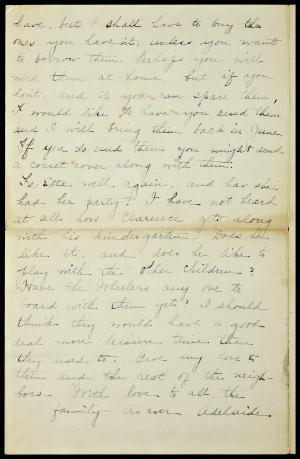 have, but I shall have to buy the
ones you have it, unless you want
to borrow them. Perhaps you will
need them at home, but if you
don't and if you can spare them,
I would like to have you send them
and I will bring them back in June.
If you do send them you might send
a corset cover along with them.
Is Etta well again, and has she
had her party? I have not heard
at all how Clarence gets along
with his kindergarten. Does he
like it, and does he like to
play with the other children?
Have the Wheelers any one to
board with them yet? I should
think they would have a good
deal more leisure time then
they used to. Give my love to
them and the rest of the neigh-
bors. With love to all the
family as ever Adelaide.